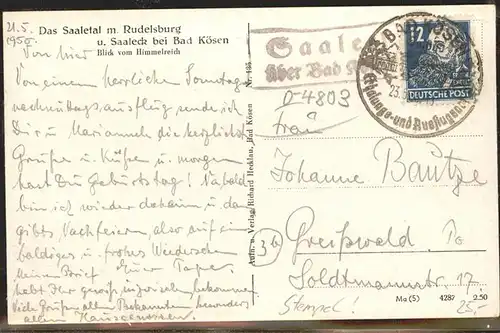 21.5.
1950
Das Saaletal m. Rudelsburg
u. Saaleck bei Bad Kösen
Blick vom Himmelreich
Von hier
Von einem herrlichen Sonntag
nachmittagsausflug sende ich
Dir u. Mariannek die herzlichst
Grüße u. Küsse u. morgen
hast Du Geburtstag! Na, bald
bin ich wieder daheim u. da
gibts Nachfeiern, also auf ein
baldiges u. frohes Wiedersehen
Meinen Brief
habt Ihr gewiß inzwischen bekommen
Viele Grüße allen Bekannten besonders
allen
Nr. 195
Aufn. u. Verlag Richard Hecklau, Bad Kösen
Saale
über Bad K
BAD KÖSEN
23.
12
DEUTSCHE POST
D-4803
Frau
Johanne Bautze
3b
Greifswald
Soldtmannstr. 17
Stempel!
Ma (5) 4287 2.50
25,-